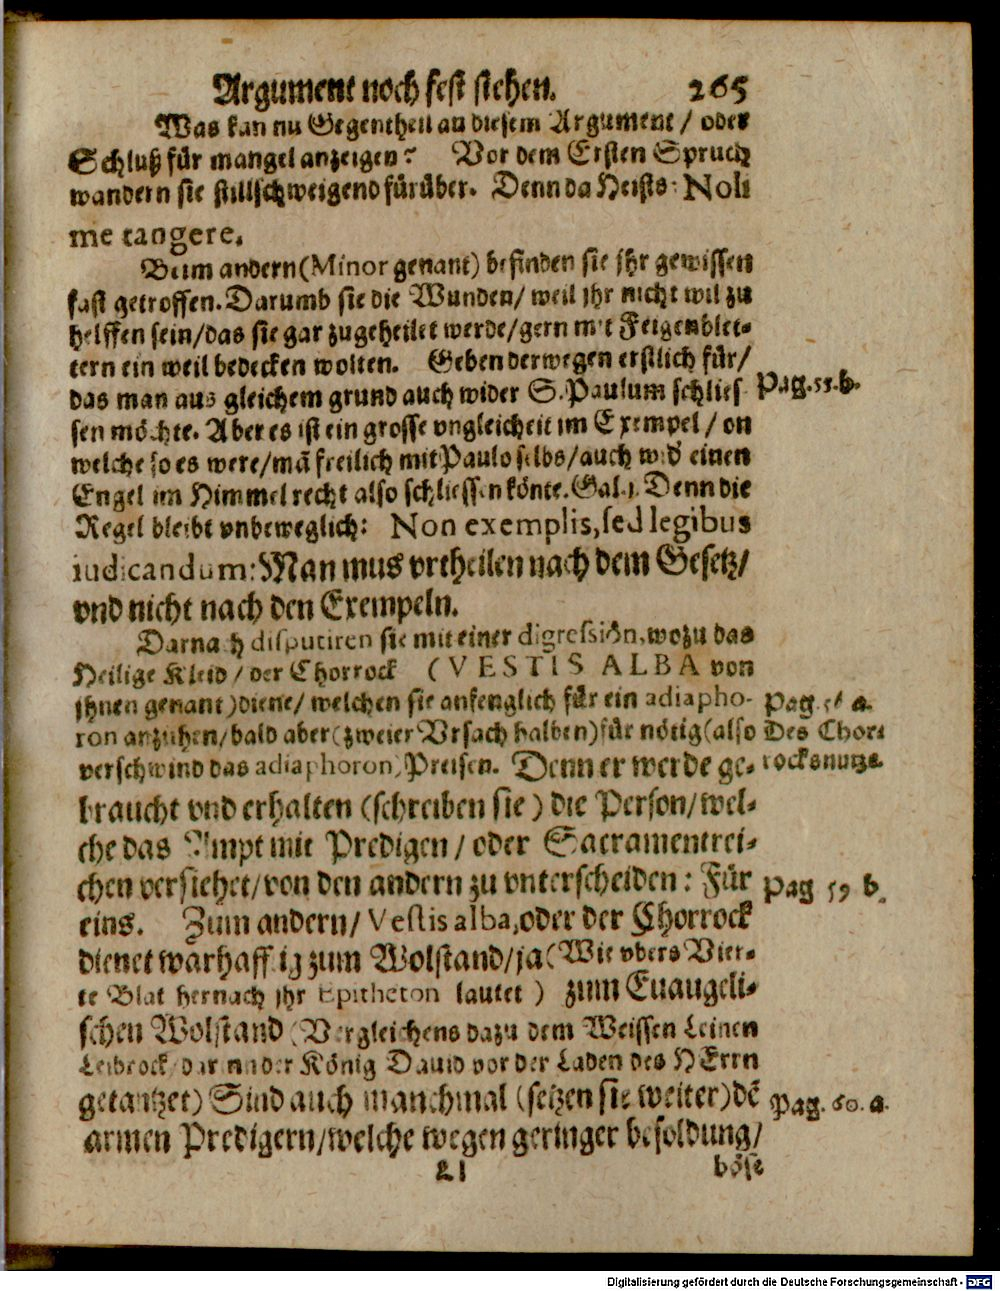 Argument noch fest stehen. 265
Was kan nu Gegentheil an diesem Argument / oder
Schluß für mangel anzeigen? Vor dem Ersten Spruch
wandern sie stillschweigend fürüber. Denn da heists: Noli
me tangere.
Beim andern (Minor genant) befinden sie jhr gewissen
fast getroffen. Darumb sie die Wunden / weil jhr nicht wil zu
helffen sein / das sie gar zugeheilet werde / gern mit Feigenblet-
tern ein weil bedecken wolten. Geben derwegen erstlich für /
das man aus gleichem grund auch wider S. Paulum schlies
Pag. 55. b.
sen möchte. Aber es ist ein grosse vngleicheit im Exempel / on
welche so es were / mā freilich mit Paulo selbs / auch wid' einen
Engel im Himmel recht also schliessen könte. Gal. 1. Denn die
Regel bleibt vnbeweglich: Non exemplis, sed legibus
iudicandum: Man mus vrtheilen nach dem Gesetz /
vnd nicht nach den Exempeln.
Darnach disputiren sie mit einer digressiõn, wozu das
Heilige Kleid / der Chorrock (VESTIS ALBA von
jhnen genant) diene / welchen sie anfenglich für ein adiapho-
Pag. a.
ron anzuhen / bald aber (zweier Vrsach halben) für nötig (also
Des Chor
verschwind das adiaphoron) Preisen. Denn er werde ge-
rocks nutze.
braucht vnd erhalten (schreiben sie) die Person / wel-
che das Ampt mit Predigen / oder Sacramentrei-
chen versiehet / von den andern zu vnterscheiden: Für
Pag 59 b.
eins. Zum andern / Vestis alba, oder der Chorrock
dienet warhafftig zum Wolstand / ja (Wie vbers Vier-
te Blat hernach jhr Epitheton lautet) zum Euangeli-
schen Wolstand (Vergleichens dazu dem Weissen Leinen
Leibrock / darinnder König Dauid vor der Laden des HErrn
getantzet) Sind auch manchmal (setzen sie weiter) dē
Pag. 60. a.
armen Predigern / welche wegen geringer besoldung /
Ll böse
Digitalisierung gefördert durch die Deutsche Forschungsgemeinschaft - DFG